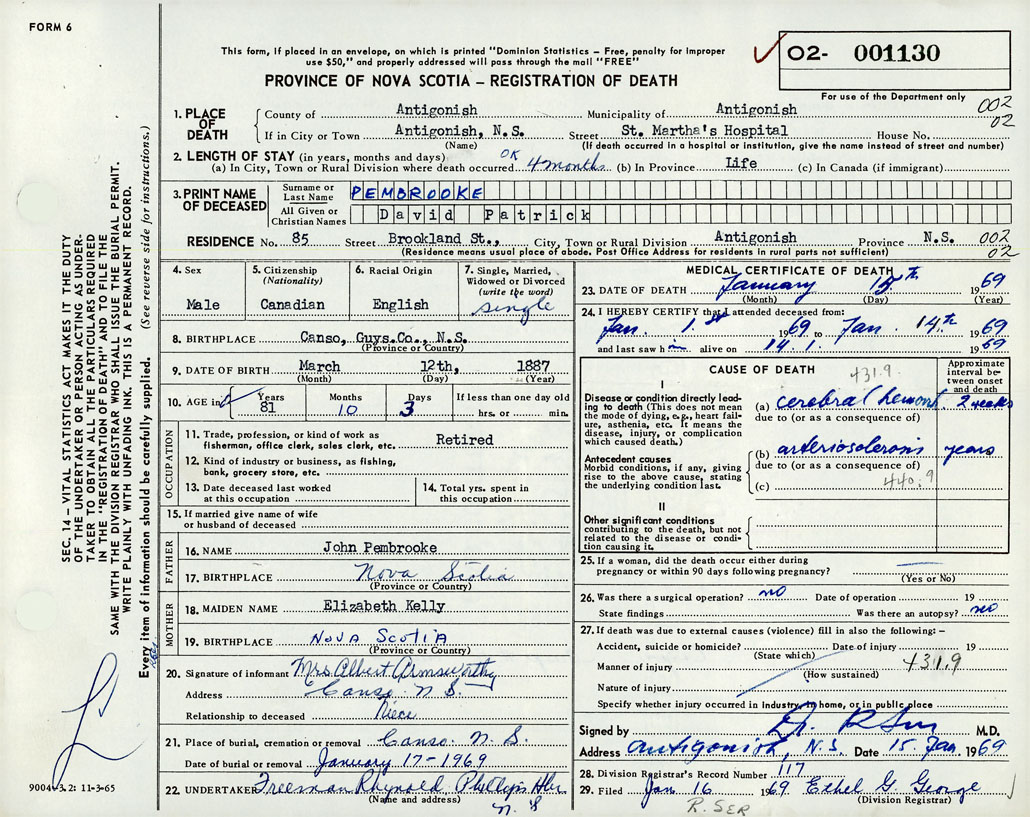 FORM 6
This form, if placed in an envelope, on which is printed "Dominion Statistics – Free, penalty for improper
use $50," and properly addressed will pass through the mail "FREE"
PROVINCE OF NOVA SCOTIA – REGISTRATION OF DEATH
O2- 001130
For use of the Department only
002
02
1. PLACE OF DEATH
County of Antigonish Municipality of Antigonish
If in City or Town Antigonish, N.S. Street St. Martha's Hospital House No.
(Name) (If death occurred in a hospital or institution, give the name instead of street and number)
2. LENGTH OF STAY (in years, months and days) OK
(a) In City, Town or Rural Division where death occurred 4 months (b) In Province Life (c) In Canada (if immigrant)
3. PRINT NAME OF DECEASED
Surname or Last Name PEMBROOKE
All Given or Christian Names David Patrick
RESIDENCE No. 85 Street Brookland St., City, Town or Rural Division Antigonish Province N.S. 002
(Residence means usual place of abode. Post Office Address for residents in rural parts not sufficient) 02
4. Sex
Male
5. Citizenship
(Nationality)
Canadian
6. Racial Origin
English
7. Single, Married,
Widowed or Divorced
(write the word)
single
8. BIRTHPLACE Canso, Guys.Co., N.S.
(Province or Country)
9. DATE OF BIRTH March 12th, 1887
(Month) (Day) (Year)
10. AGE in Years Months Days If less than one day old
81 10 3 hrs. or min.
OCCUPATION
11. Trade, profession, or kind of work as
fisherman, office clerk, sales clerk, etc. Retired
12. Kind of industry or business, as fishing,
bank, grocery store, etc.
13. Date deceased last worked
at this occupation
14. Total yrs. spent in
this occupation
15. If married give name of wife
or husband of deceased
FATHER
16. NAME John Pembrooke
17. BIRTHPLACE Nova Scotia
(Province or Country)
MOTHER
18. MAIDEN NAME Elizabeth Kelly
19. BIRTHPLACE NOVA SCOTIA
(Province or Country)
20. Signature of informant Mrs Albert Armsworthy
Address Canso N S.
Relationship to deceased Niece
21. Place of burial, cremation or removal Canso N. S.
Date of burial or removal January 17-1969
22. UNDERTAKER Freeman Rhynold, Phillips Hbr
(Name and address) N. S
MEDICAL CERTIFICATE OF DEATH
23. DATE OF DEATH January 15th 1969
(Month) (Day) (Year)
24. I HEREBY CERTIFY that I attended deceased from:
Jan. 1st 1969 to Jan. 14th 1969
and last saw him alive on 14.1. 1969
CAUSE OF DEATH 431.9
Approximate
interval be-
tween onset
and death
I
Disease or condition directly lead-
ing to death (This does not mean
the mode of dying, e.g., heart fail-
ure, asthenia, etc. It means the
disease, injury, or complication
which caused death.)
(a) cerebral hemorrh. 2 weeks
due to (or as a consequence of)
Antecedent causes
Morbid conditions, if any, giving
rise to the above cause, stating
the underlying condition last.
(b) arteriosclerosis years
due to (or as a consequence of)
(c) 440.9
II
Other significant conditions
contributing to the death, but not
related to the disease or condi-
tion causing it.
25. If a woman, did the death occur either during
pregnancy or within 90 days following pregnancy?
(Yes or No)
26. Was there a surgical operation? no Date of operation 19
State findings Was there an autopsy? no
27. If death was due to external causes (violence) fill in also the following: –
Accident, suicide or homicide? Date of injury 19
(State which)
Manner of injury 431.9
(How sustained)
Nature of injury
Specify whether injury occurred in industry, in home, or in public place
Signed by M.D.
Address Antigonish, N.S. Date 15 Jan 1969
28. Division Registrar's Record Number 117
29. Filed Jan 16 1969 Ethel G. George
(Division Registrar)
R. SER
SEC. 14 – VITAL STATISTICS ACT MAKES IT THE DUTY
OF THE UNDERTAKER OR PERSON ACTING AS UNDER-
TAKER TO OBTAIN ALL THE PARTICULARS REQUIRED
IN THE "REGISTRATION OF DEATH" AND TO FILE THE
SAME WITH THE DIVISION REGISTRAR WHO SHALL ISSUE THE BURIAL PERMIT.
WRITE PLAINLY WITH UNFADING INK. THIS IS A PERMANENT RECORD.
Every item of information should be carefully supplied. (See reverse side for instructions.)
11-3-65